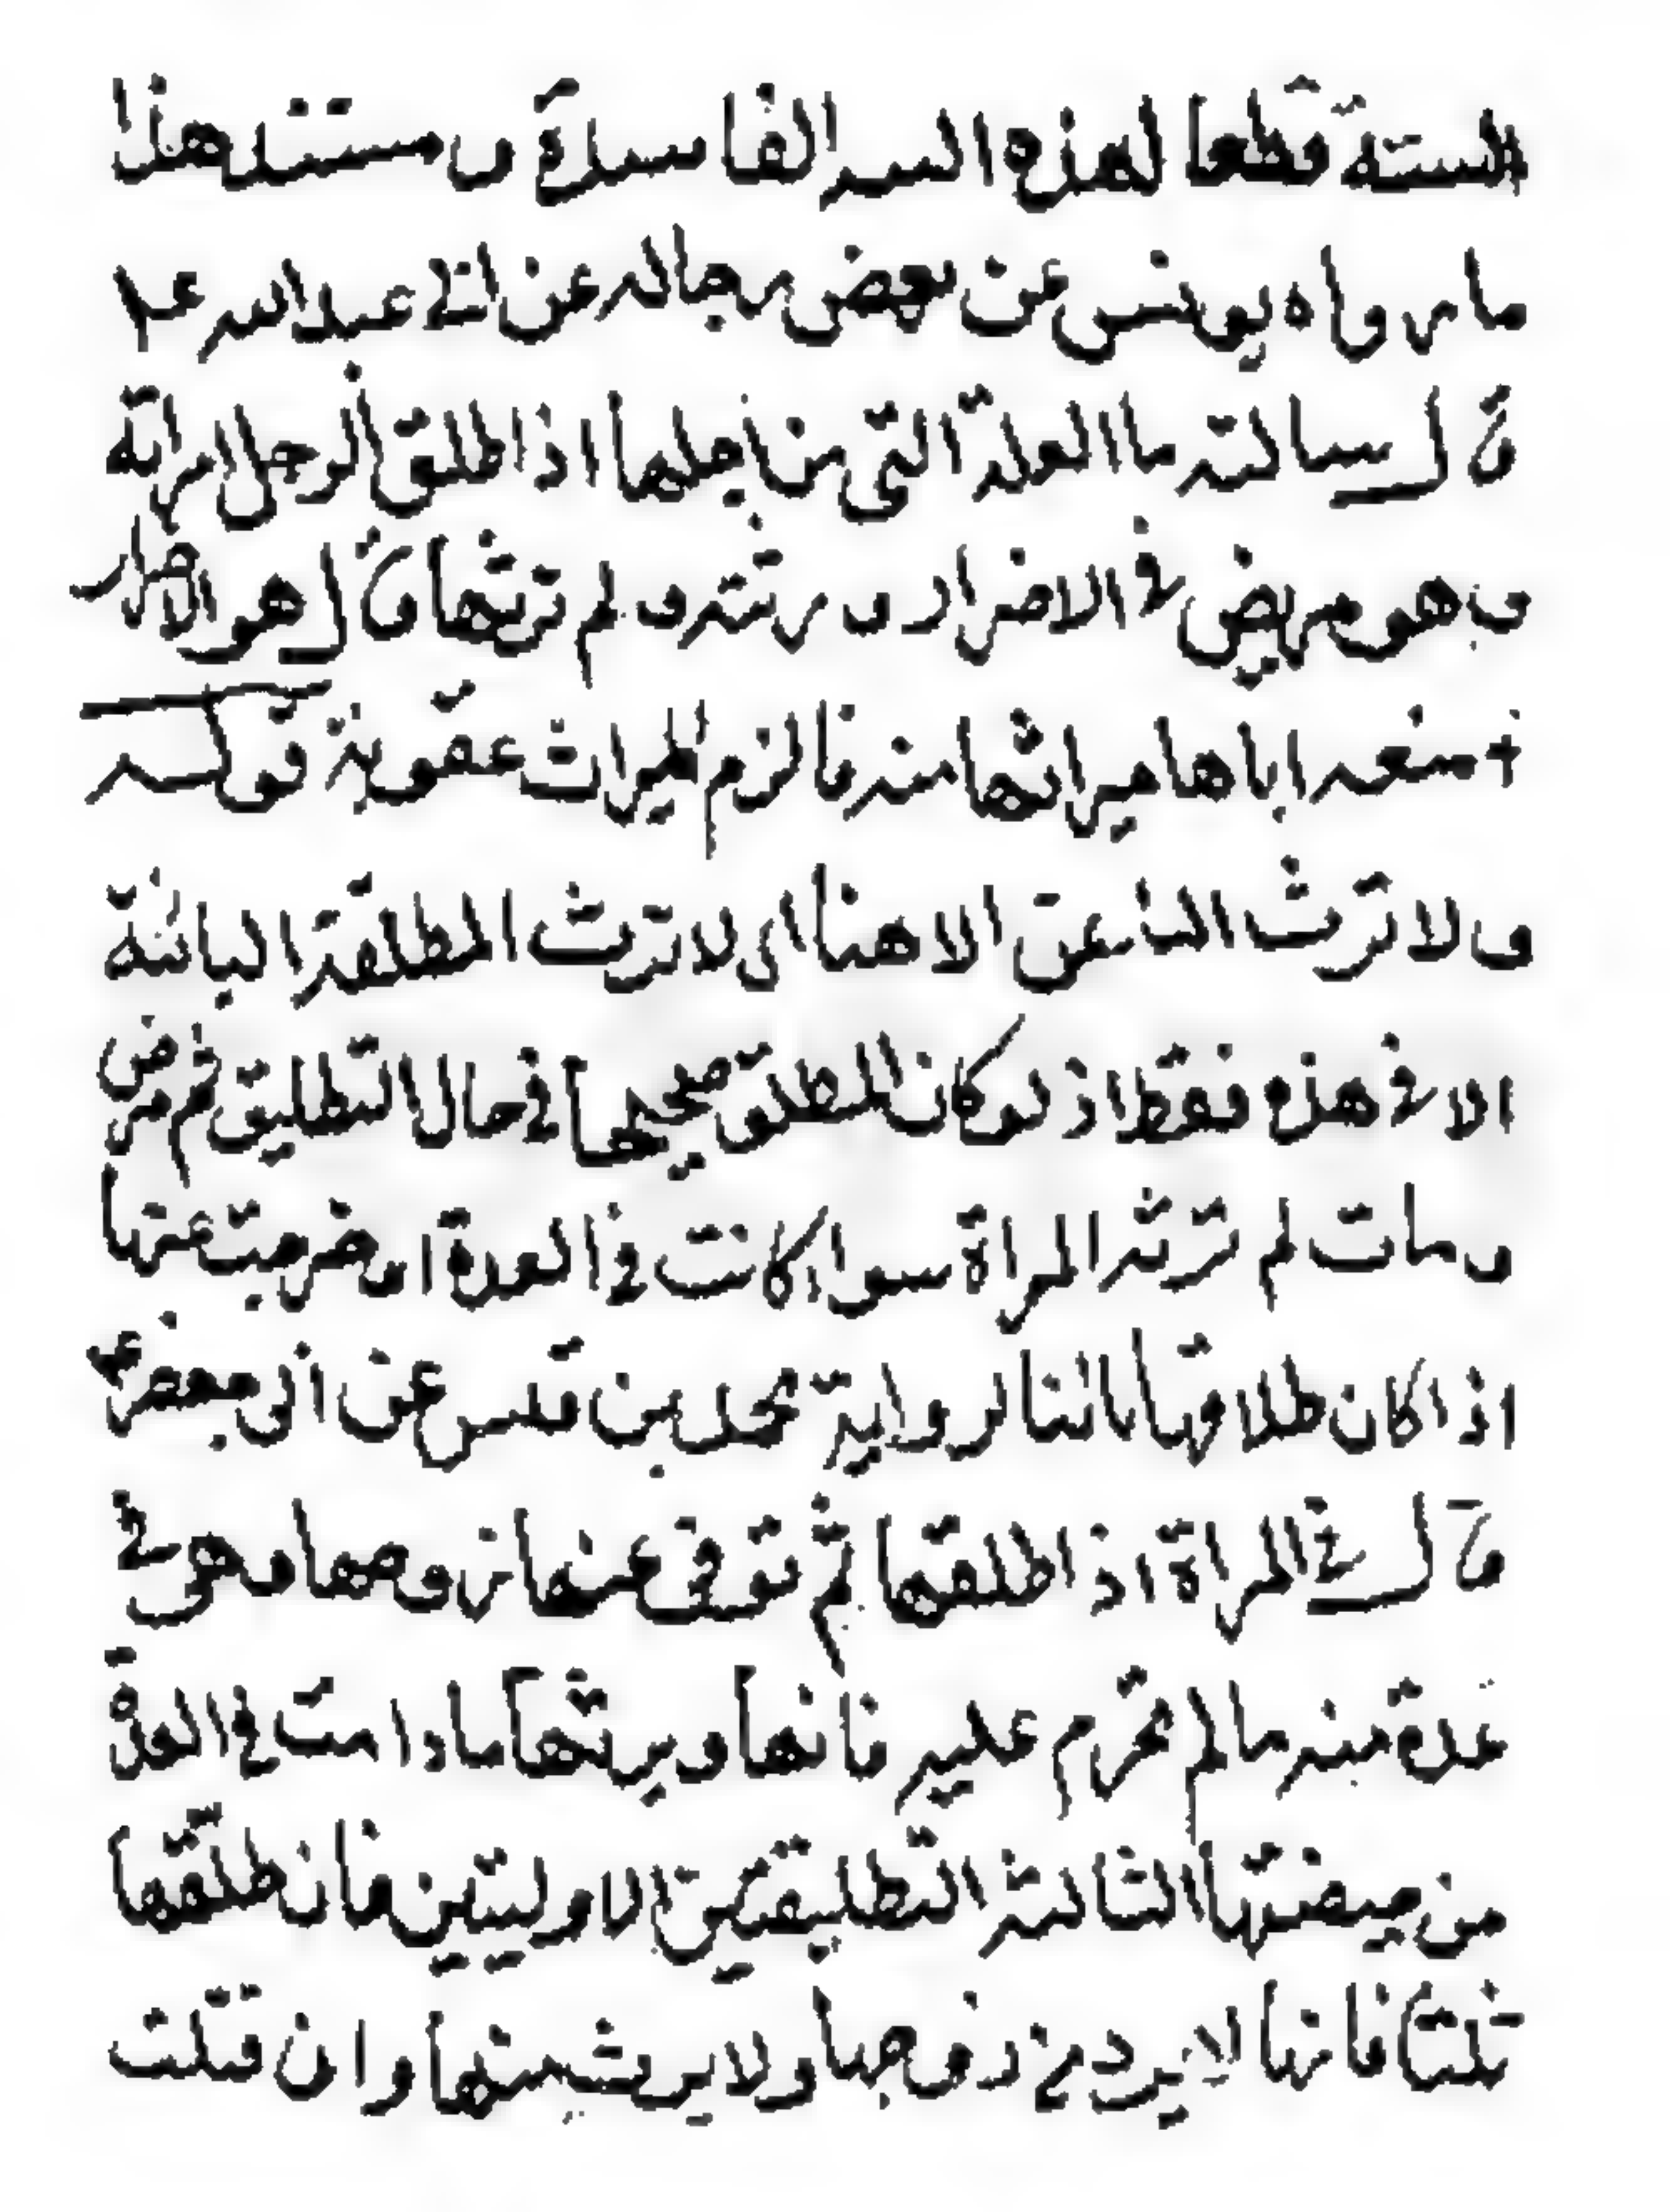 السنة قطعا لهذه السر الفاسدة ومستند هذا
ما رواه يونس عن بعض رجاله عن ابي عبد الله عم
قال سالته ما العلة التي من اجلها اذا طلق الرجل امراته
وهو مريض في الاضرار ورثته ولم ترثها قال هو الاضرار
منعه اياها ميراثها منه فالزم الميراث عقوبة قوله
ولا ترث البائن الا هنا اي لا ترث المطلقة البائنة
الا في هذه فقط اذ لو كان المطلق صحيحا في حال التطليق ثم مرض
ومات لم ترثه المراة سواء كانت في العدة او خرجت عنها
اذا كان طلاقها بائنا لرواية محمد بن قيس عن ابي جعفر ع
قال في المراة اذا طلقها ثم توفى عنها زوجها وهو في
عدة منه ما لم تحرم عليه فانها ويرثها ما دامت في العدة
من حيضتها الثالثة التطليقتين الاوليتين فان طلقها
ثلثا فانها لا يرد من زوجها ولا يرث منها وان قلت